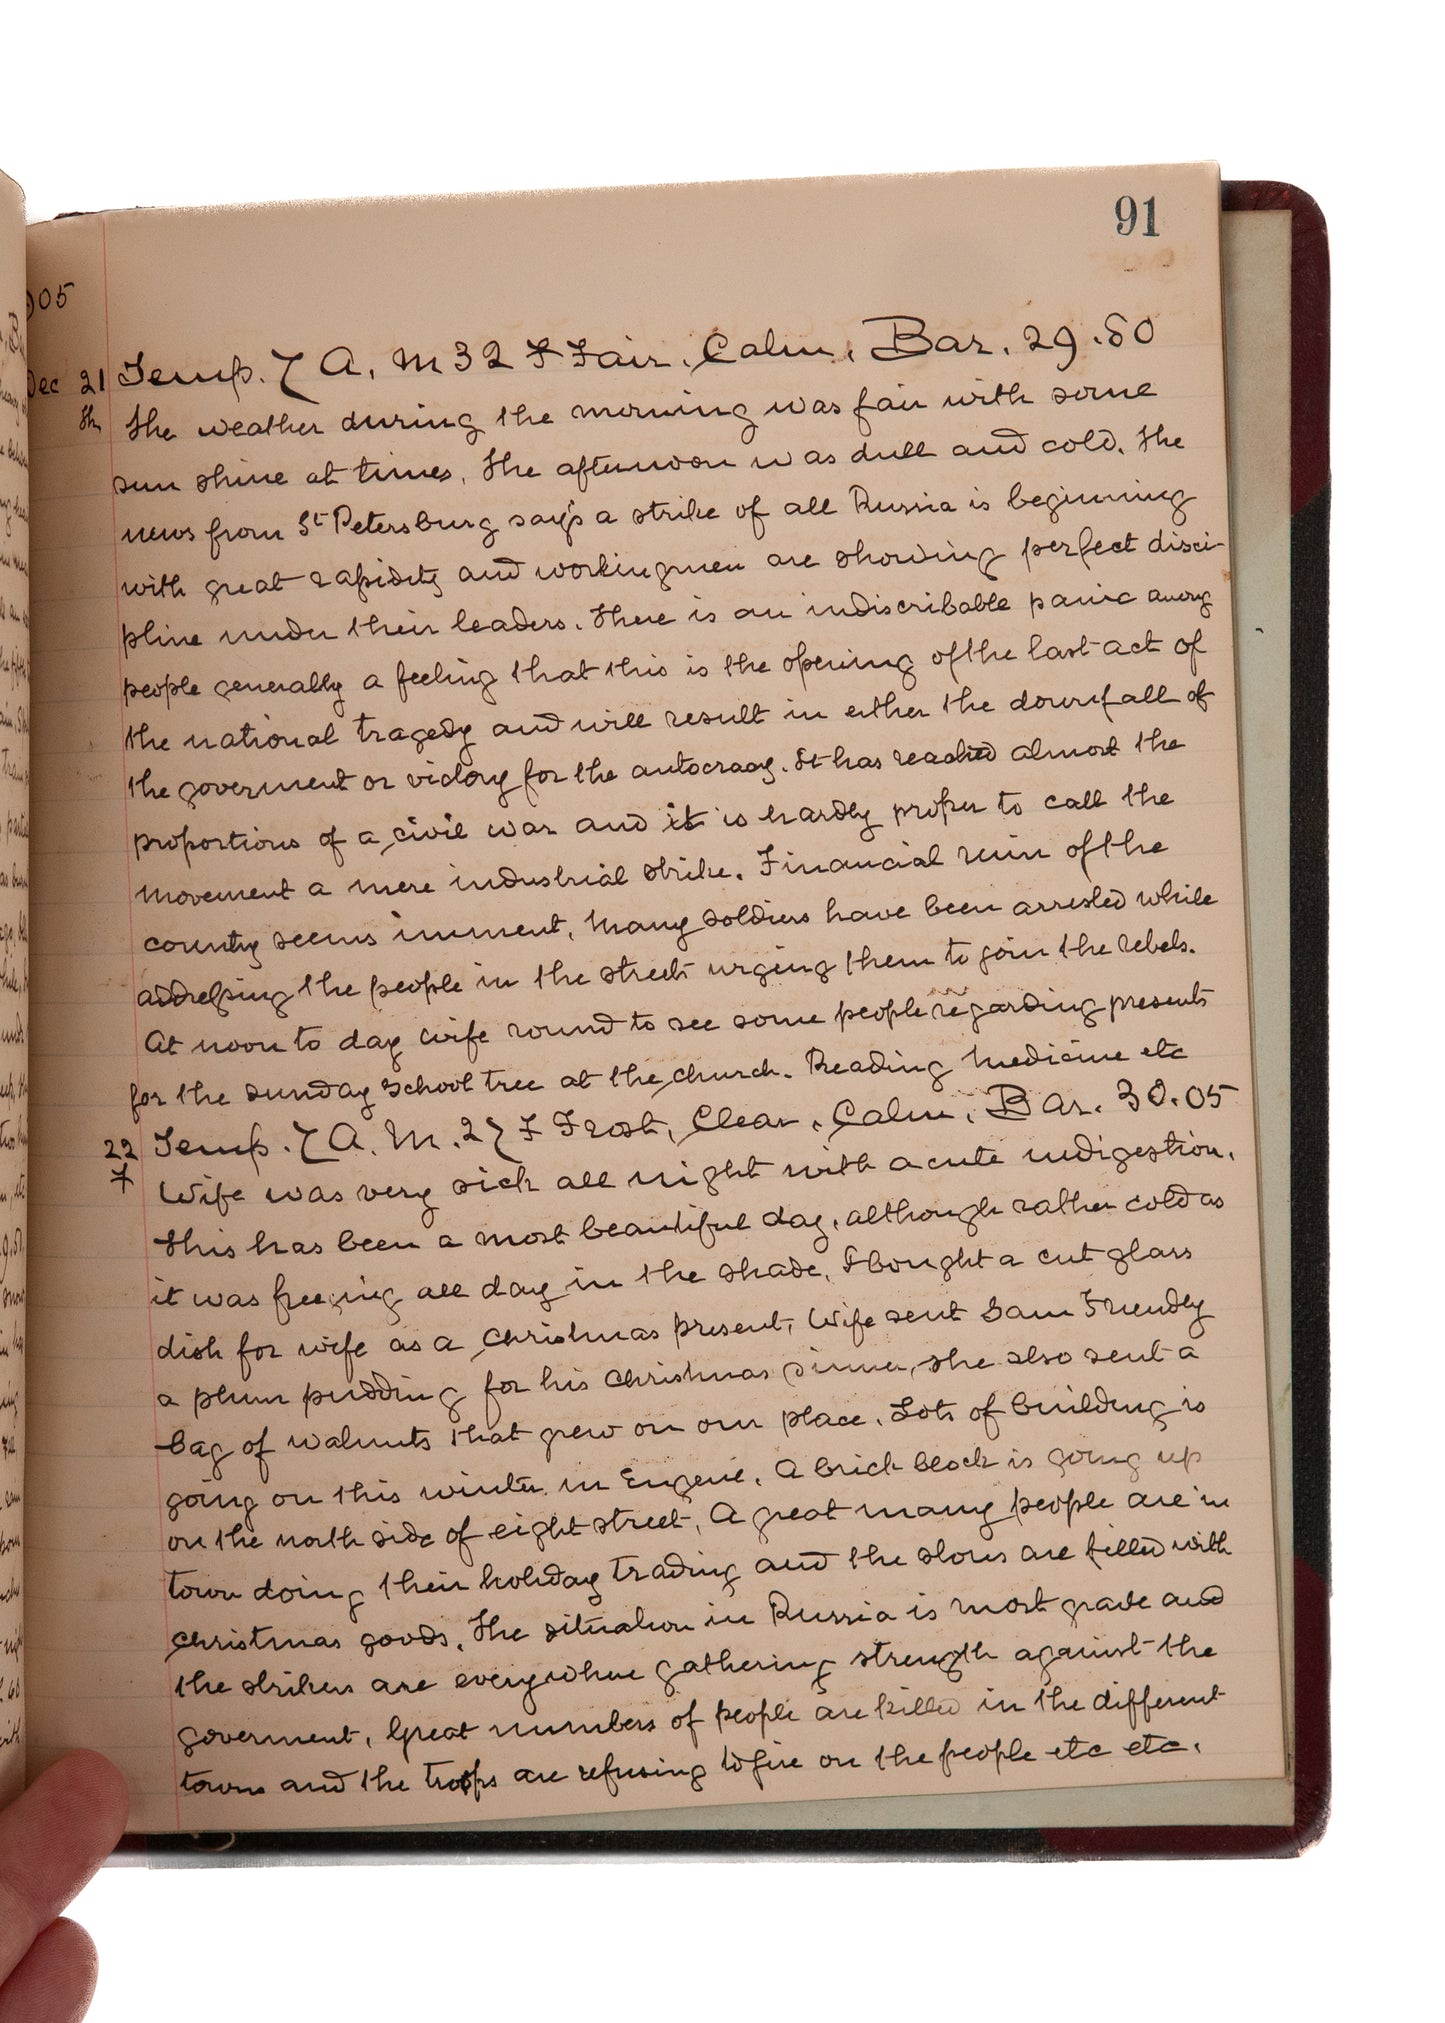 91
905
Dec 21 Temp. 7 A. M 32 F Fair. Calm. Bar. 29.80
Th The weather during the morning was fair with some
sun shine at times. The afternoon was dull and cold. The
news from St Petersburg says a strike of all Russia is beginning
with great rapidity and workingmen are showing perfect disci-
pline under their leaders. There is an indiscribable panic among
people generally a feeling that this is the opening of the last act of
the national tragedy and will result in either the downfall of
the goverment or victory for the autocracy. It has reached almost the
proportions of a civil war and it is hardly proper to call the
movement a mere industrial strike. Financial ruin of the
country seems imment. Many soldiers have been arrested while
addressing the people in the streets urging them to join the rebels.
At noon to day wife round to see some people regarding presents
for the sunday school tree at the church. Reading Medicine etc
22 Temp. 7 A. M. 27 F Frost, Clear. Calm. Bar. 30.05
F Wife was very sick all night with acute indigestion.
This has been a most beautiful day, although rather cold as
it was freezing all day in the shade. I bought a cut glass
dish for wife as a christmas present. Wife sent Sam Friendly
a plum pudding for his christmas dinner, she also sent a
bag of walnuts that grew on our place. Lots of building is
going on this winter in Eugene. A brick block is going up
on the north side of eight street. A great many people are in
town doing their holiday trading and the stores are filled with
christmas goods. The situation in Russia is most grave and
the strikers are everywhere gathering strength against the
goverment. Great numbers of people are killed in the different
towns and the troops are refusing to fire on the people etc etc.